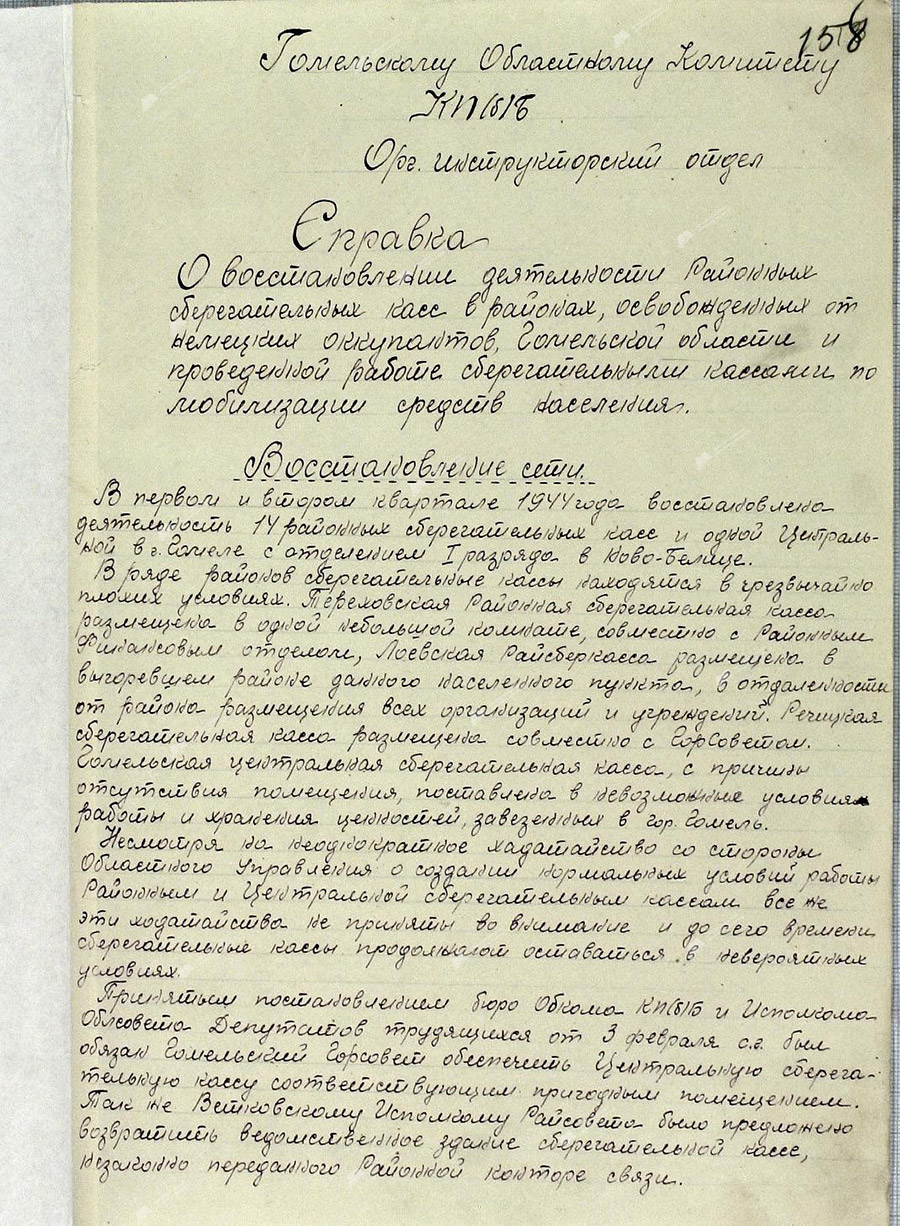 158
Гомельскому Областному Комитету
КП(б)Б
Орг. инструкторский отдел
Справка
О восстановлении деятельности Районных
сберегательных касс в районах, освобожденных от
немецких оккупантов, Гомельской области и
проведенной работе сберегательными кассами по
мобилизации средств населения.
Восстановление сети.
В первом и втором квартале 1944 года восстановлено
деятельность 14 районных сберегательных касс и одной Централь-
ной в г. Гомеле с отделением I разряда в Ново-Белице.
В ряде районов сберегательные кассы находятся в чрезвычайно
плохих условиях. Тереховская Районная сберегательная касса
размещена в одной небольшой комнате, совместно с Районным
Финансовым отделом, Лоевская Райсберкасса размещена в
выгоревшем районе данного населенного пункта, в отдаленности
от района размещения всех организаций и учреждений. Речицкая
сберегательная касса размещена совместно с ГорСоветом.
Гомельская центральная сберегательная касса, с причины
отсутствия помещения, поставлена в невозможных условиях
работы и хранения ценностей, завезенных в гор. Гомель.
Несмотря на неоднократное хадатайство со стороны
Областного Управления о создании нормальных условий работы
Районным и Центральной сберегательным кассам все же
эти ходатайства не приняты во внимание и до сего времени
сберегательные кассы продолжают оставаться в невероятных
условиях.
Принятым постановлением бюро Обкома КП(б)Б и Исполкома
Облсовета Депутатов трудящихся от 3 февраля с.г. был
обязан Гомельский Горсовет обеспечить Центральную сберега-
тельную кассу соответствующим пригодным помещением.
Так же Ветковскому Исполкому Райсовета было предложено
возвратить ведомственное здание сберегательной кассе,
незаконно переданного Районной конторе связи.